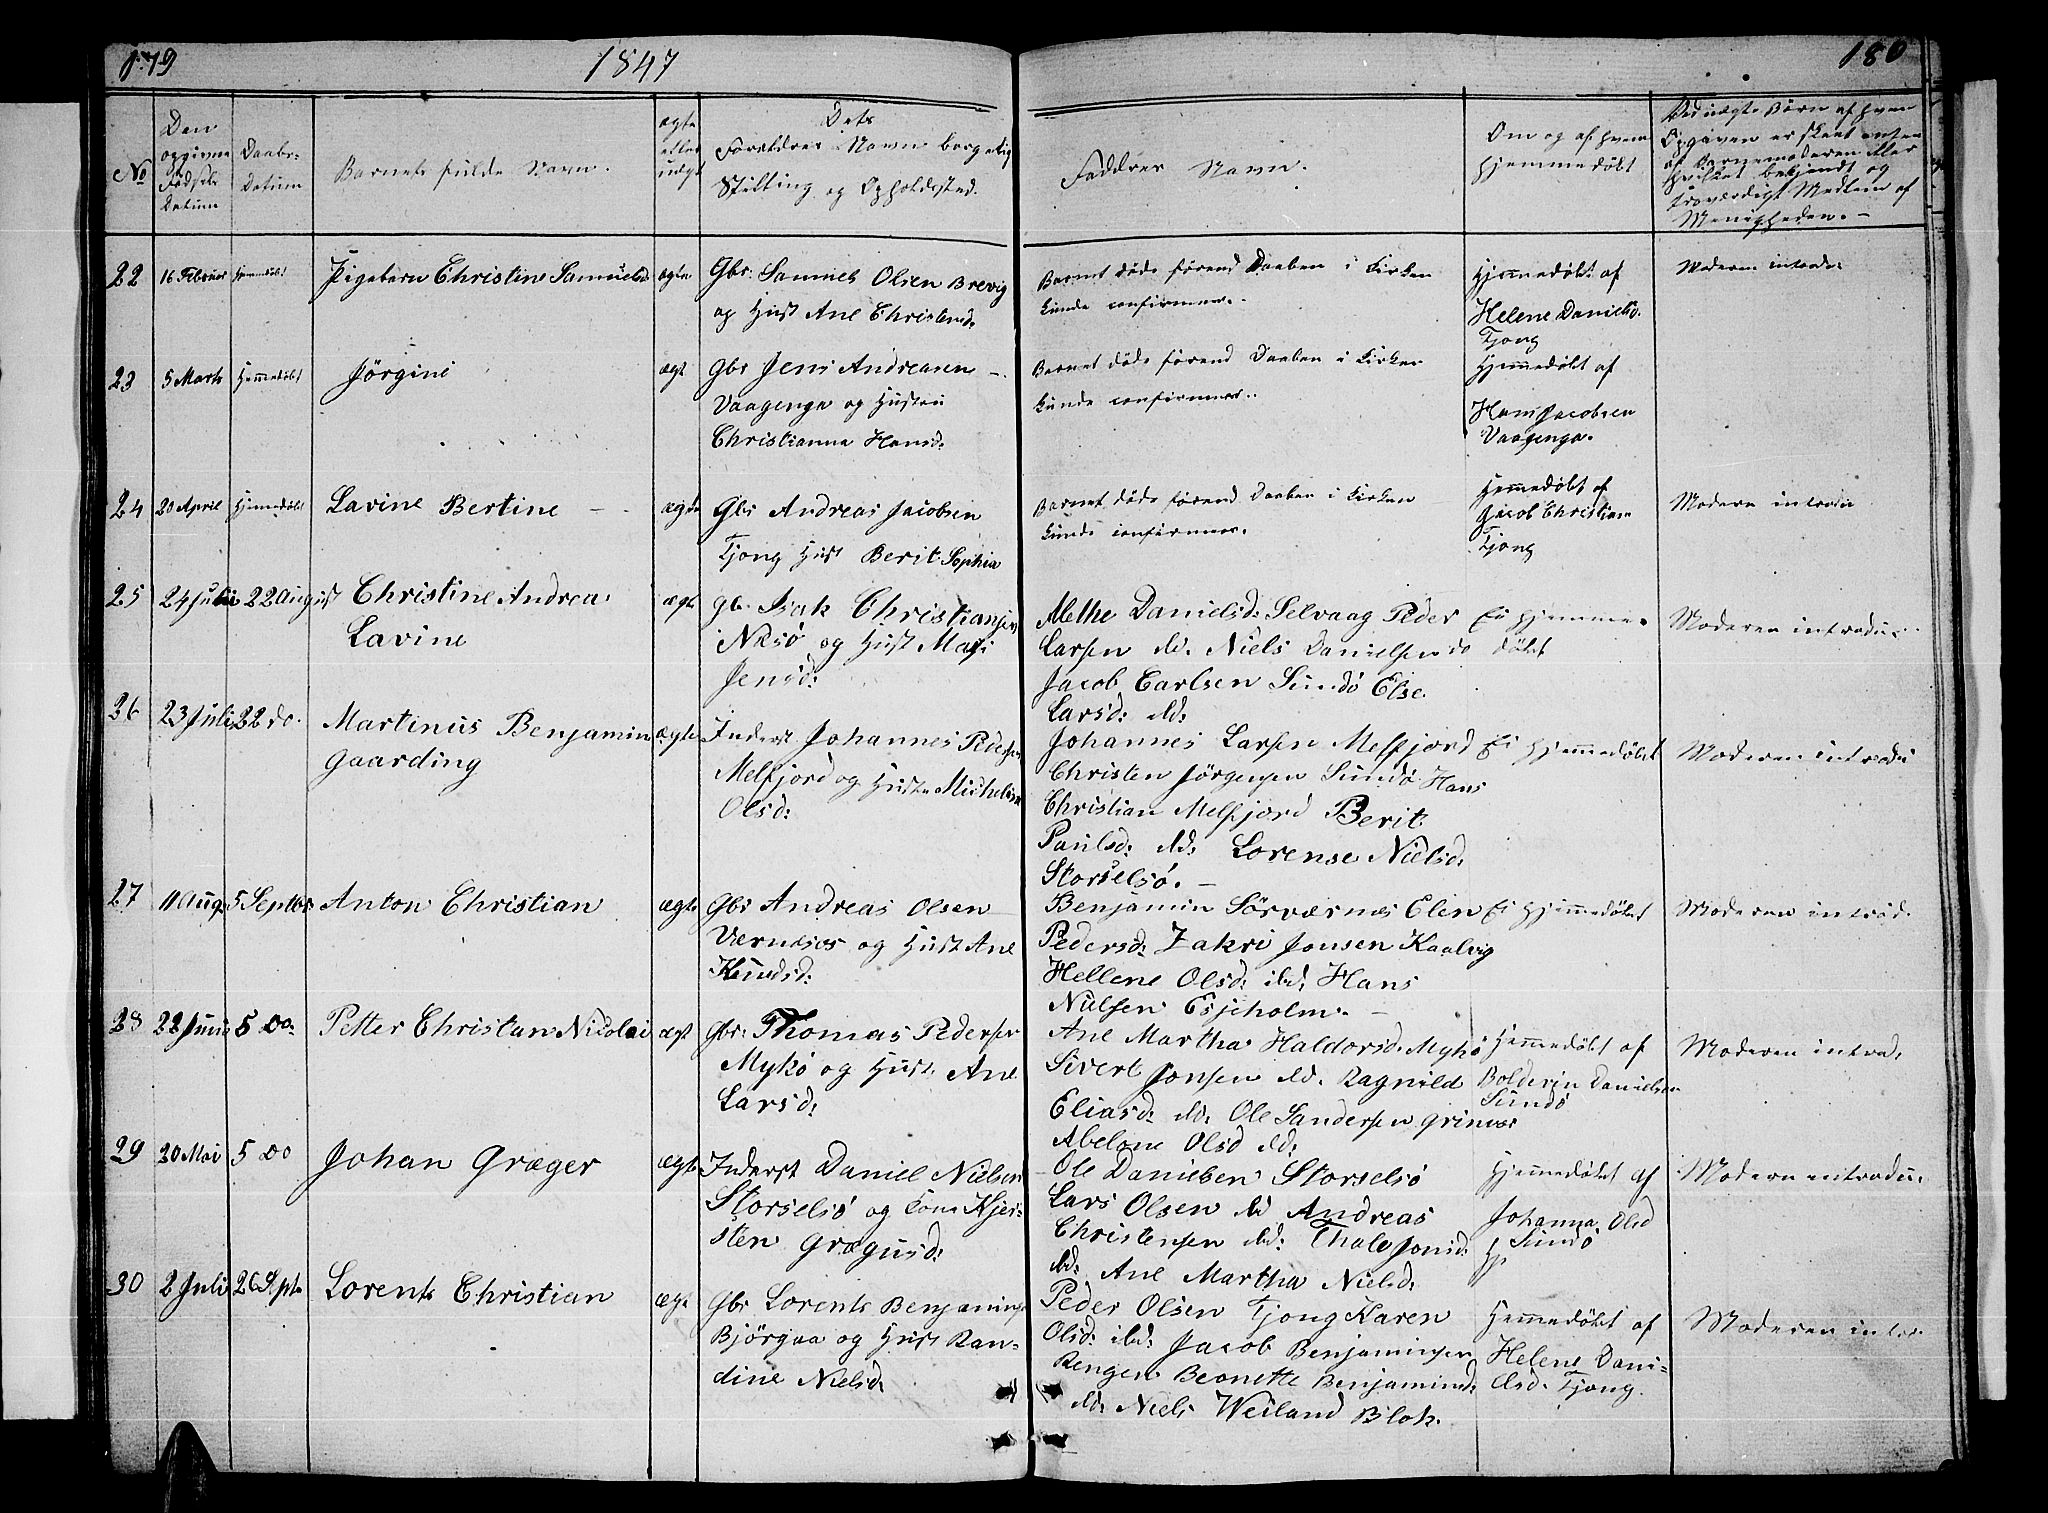 179
1847
180
No
Den opgivne Fødsels Datum
Daabs-Datum
Barnets fulde Navn.
ægte eller uægt
Dets Forældres Navn borgerlig Stilling og Opholdssted.
Faddres Navn.
Om og af hvem hjemmedøbt
Ved uægte Børn af hvem Opgaven er skeet enten af Barnemoderen eller hvilket bekjendt og troværdigt Medlem af Menigheden. -
22 16 Februar Hjemmedøbt Pigebarn Christine Samuelsd ægte Gbr: Samuel Olsen Brevig
og Hust Ane Christensd.
Barnet døde førend Daaben i Kirken
kunde confirmeres.
Hjemmedøbt af
Helene Danielsd.
Tjong
Moderen introdu:
23 5 Marts Hjemmedøbt Jörgine ægt Gbr Jens Andreasen -
Vaagenge og Hustru
Christianna Hansd.
Barnet døde førend Daaben i Kirken
kunde confirmeres.
Hjemmedøbt af
Hans Jacobsen
Vaagenga.
24 20 April Hjemmedøbt Lavine Bertine - ægte Gbr Andreas Jacobsen
Tjong Hust Berit Sophia
Barnet døde førend Daaben i Kirken
kunde confirmeres.
Hjemmedøbt af
Jacob Christian
Tjong
Moderen introdu
25 24 Juli 22 August Christine Andrea
Lavine
ægte Gbr Isak Christiansen
Næsö og Hust Maji
Jensd:
Methe Danielsd: Selvaag Peder
Larsen ibd. Niels Danielsen do
Jacob Carlsen Sundö Else
Larsd: ibd:
Ei hjemme-
døbt
Moderen introdu:
26 23 Juli 22 do. Martinus Benjamin
Gaarding
ægte Inderst Johannes Peders
Melfjord og Hust
Olsd:
Johannes Larsen Melfjord
Christen Jörgensen Sundö Hans
Christian Melfjord Berit
Paulsd: ibd: Lorense Nielsd:
Storselsö. -
Ei hjemmedøbt
Moderen introdu
27 11 Aug. 5 Septbr Anton Christian ægte Gbr Andreas Olsen
Værnæs og Hust Ane
Knudsd:
Benjamin Sörværnæs Elen
Pedersd: Zakri Jonsen Kaalvig
Hellene Olsd: ibd. Hans
Nielsen Esjeholm. -
Ei hjemmedøbt
Moderen introd.
28 22 Juni 5 do. Petter Christan Nicolai ægt Gbr: Thomas Pedersen
Mykö og Hust Ane
Larsd:
Ane Martha Haldorsd: Mykö
Sivert Jonsen ibd. Ragnild
Eliasd: ibd: Ole Sandersen Grinvær
Abelone Olsd ibd:
Hjemmedøbt af
Danielsen
Sundö
Moderen introd.
29 20 Mai 5 do Johan Græger ægte Inderst Daniel Nielsen
Storselsö og Kone Kjer-
sten Grægusd:
Ole Danielsen Storselsö
Lars Olsen ibd Andreas
Christensen ibd: Thale Jonsd:
ibd: Ane Martha Nielsd:
Hjemmedøbt af
Johanna Olsd
Sundö
Hj.
Moderen introdu:
30 2 Juli 26 Sept. Lorents Christian ægt Gbr Lorents Benjamins
Björgaa og Hust Ran-
dine Nielsd:
Peder Olsen Tjong Karen
Olsd: ibd: Jacob Benjaminsen
Rengen Benjaminsd:
ibd. Niels Weiland Blok.
Hjemmedøbt af
Helene Dani-
elsd. Tjong.
Moderen introd.